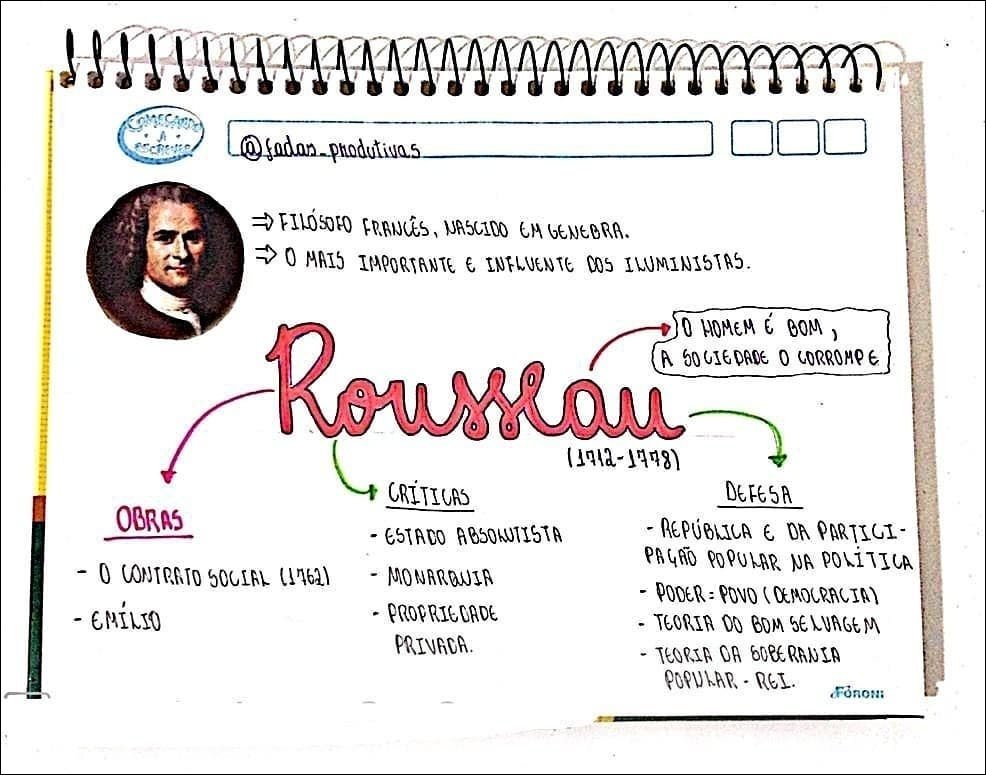 COMEÇANDO
A
ESCREVER
@fadas_produtivas
⇒ FILÓSOFO FRANCÊS, NASCIDO EM GENEBRA.
⇒ O MAIS IMPORTANTE E INFLUENTE DOS ILUMINISTAS.
O HOMEM É BOM,
A SOCIEDADE O CORROMPE
Rousseau
(1712-1778)
OBRAS
- O CONTRATO SOCIAL (1762)
- EMÍLIO
CRÍTICAS
- ESTADO ABSOLUTISTA
- MONARQUIA
- PROPRIEDADE
PRIVADA.
DEFESA
- REPÚBLICA E DA PARTICI-
PAÇÃO POPULAR NA POLÍTICA
- PODER = POVO (DEMOCRACIA)
- TEORIA DO BOM SELVAGEM
- TEORIA DA SOBERANIA
POPULAR - REI.
Foroni